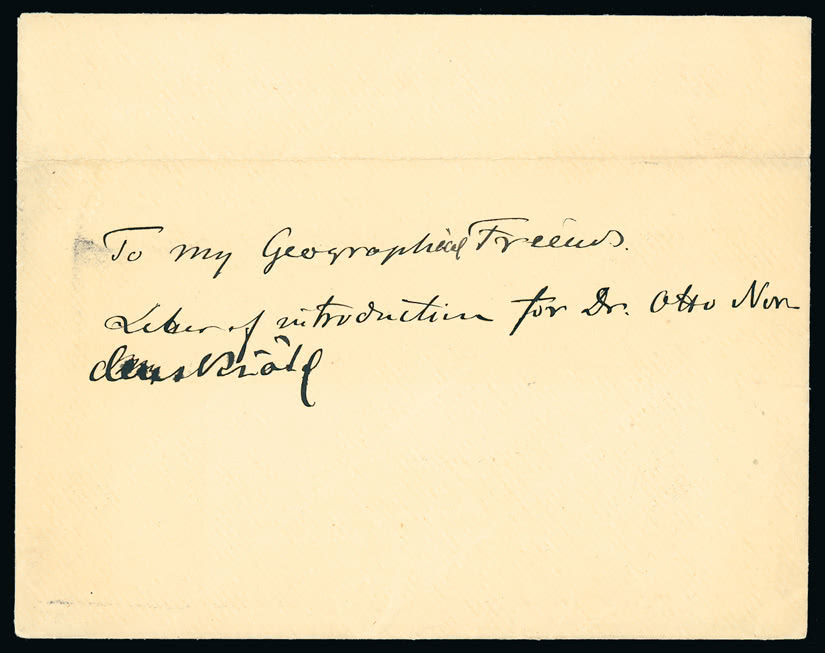 To my Geographical Friends.
Letter of introduction for Dr. Otto Nor
denskiöld